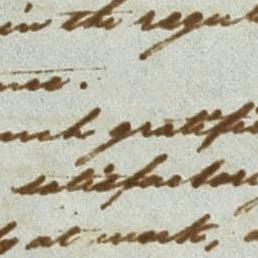 in the regul
nce.
much gratifi
satisfactory
at work,